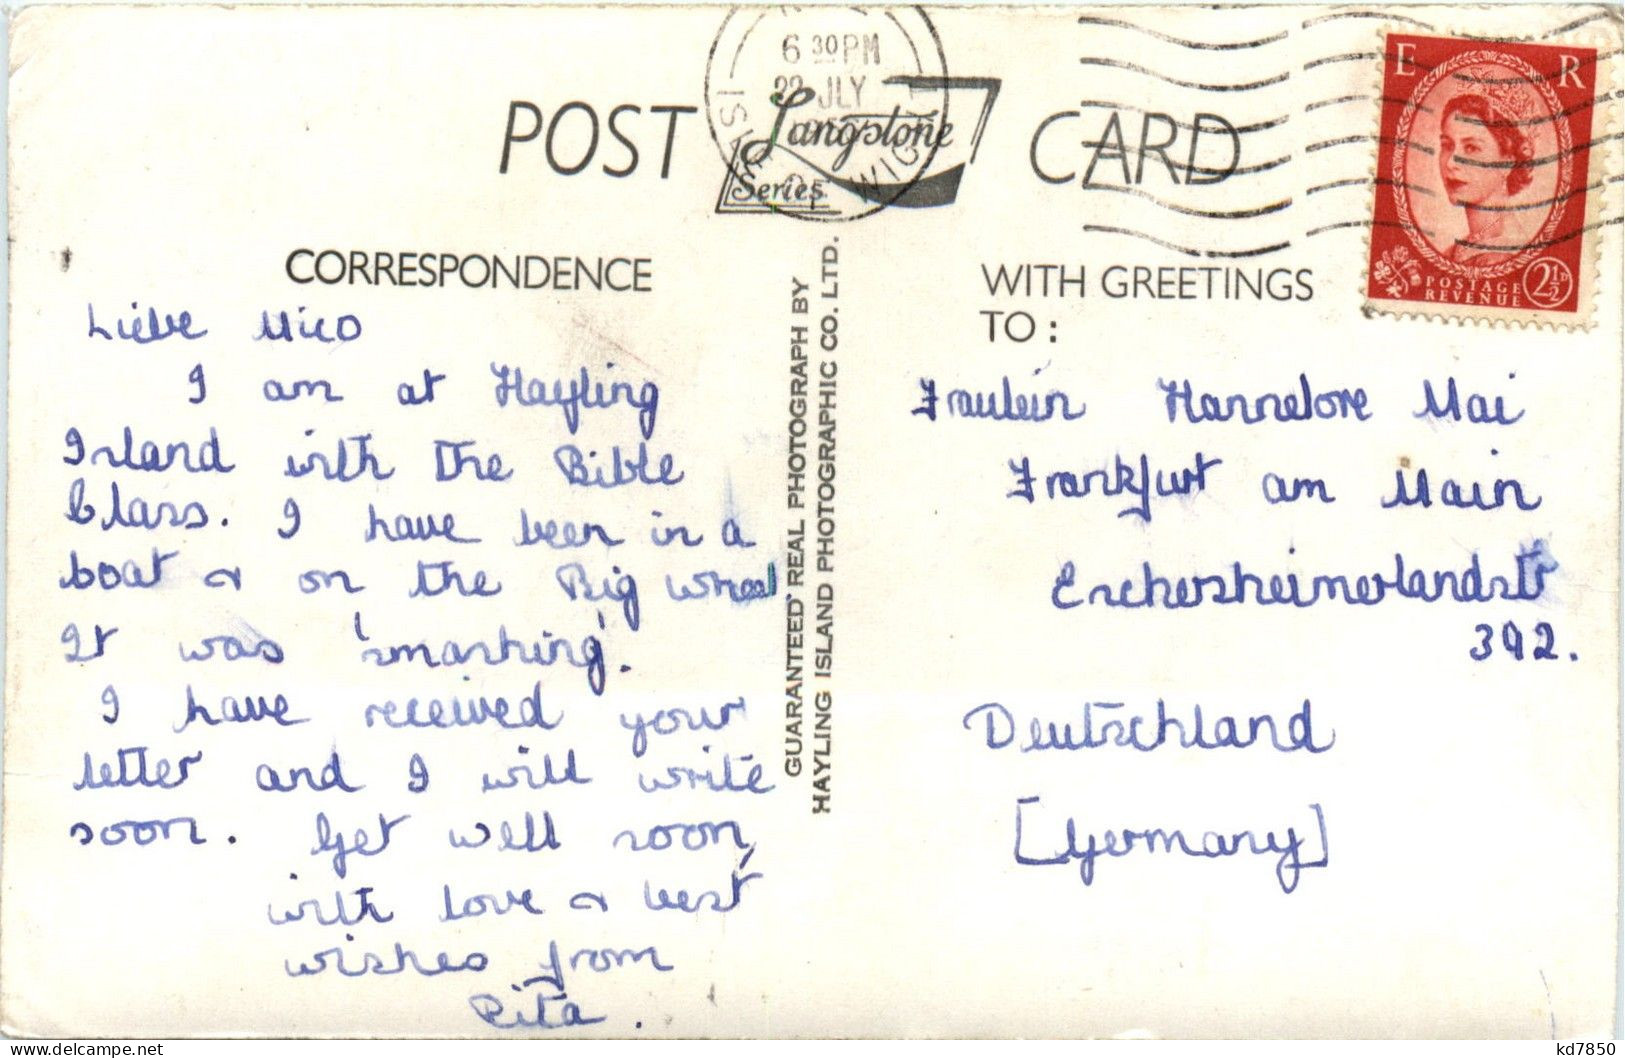 POST CARD
6 30 PM
22 JLY
ISLE OF WIGHT
Langstone
Series
E R
POSTAGE
REVENUE
2½D
CORRESPONDENCE
Liebe Mico
I am at Hayling
Island with the Bible
Class. I have been in a
boat & on the Big Wheel
It was 'smashing'.
I have received your
letter and I will write
soon. Get well soon,
with love & best
wishes from
Rita.
GUARANTEED REAL PHOTOGRAPH BY
HAYLING ISLAND PHOTOGRAPHIC CO. LTD.
WITH GREETINGS
TO:
Fraulein Hannelore Mai
Frankfurt am Main
Eschersheimerlandstr
392.
Deutschland
[Germany]
delcampe.net
kd7850